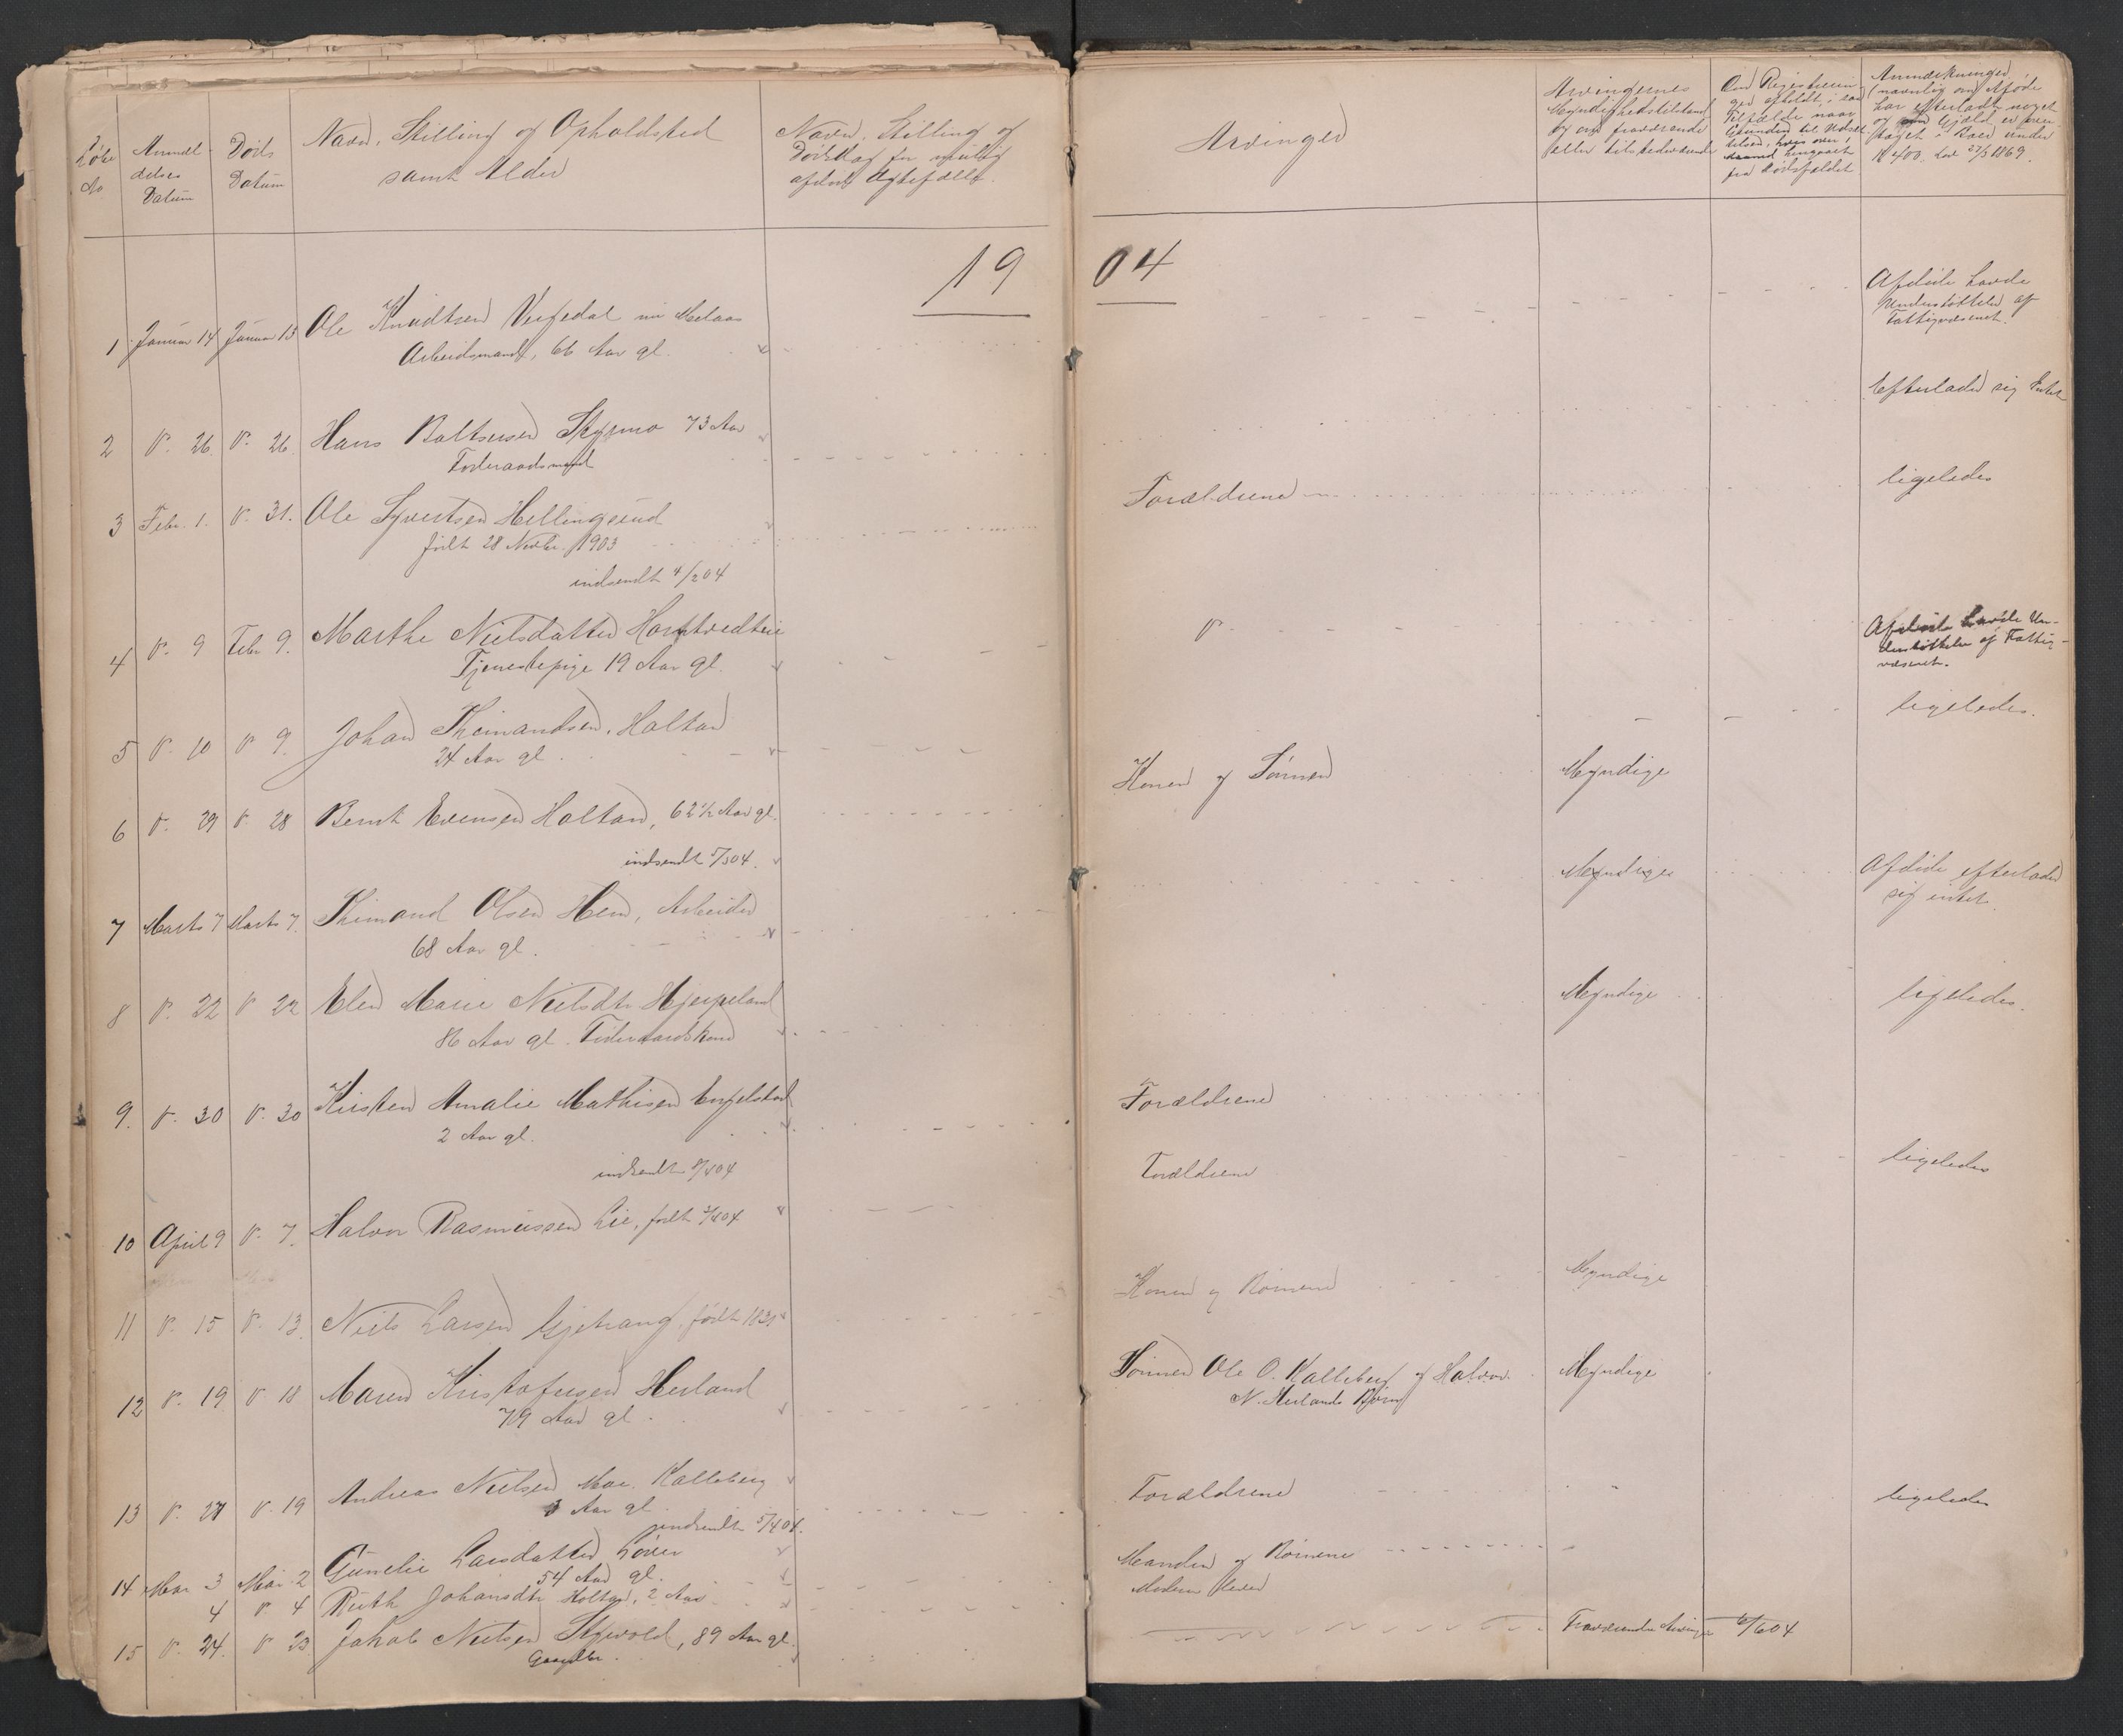 Løbe No
Anmeldelses Datum
Døds Datum
Navn, Stilling og Opholdsted
samt Alder
Navn, Stilling og
Dødsdag for mulig
afdød Ægtefælle.
Arvinger
Arvingernes
Myndighedstilstand
og om fraværende
eller tilstedeværende
Om Registrering er afholdt, i saa
Tilfælde naar
Grunden til Udsæt-
telsen, hvis over 1
Maaned hengaaet
fra Dødsfaldet
Anmærkninger
(navnlig om Afdøde
har efterladt noget
og om Gjæld er over-
taget i Brev under
K 400. Lov 27/3 1869.
1904
1 Januar 14 Januar 13 Ole Knudtsen Vegedal nu Melaas
Arbeidsmand, 66 Aar gl.
Afdøde havde
Understøttelse af
Fattigvæsenet.
2 D. 26. D. 26. Hans Baltsersen Skysmo 73 Aar
Føderaadsmand
Efterlader sig Intet
3 Febr. 1. D. 31. Ole Syvertsen Hellingsrud
født 28 Novbr. 1903
indsendt 4/2 04
Forældrene
ligeledes
4 D. 9 Febr 9. Marthe Nielsdatter
Tjenestepige 19 Aar gl.
D.
Afdøde havde Un-
derstøttelse af Fattig-
væsenet.
5 D. 10 D 9. Johan Theimandsen. Holtan
24 Aar gl.
ligeledes.
6 D. 29 D. 28 Bernt Evensen Holtan, 62 1/2 Aar gl.
indsendt 5/3 04.
Konen og Sønnen
Myndige
7 Marts 7 Marts 7. Theimand Olsen Hem, Arbeider
68 Aar gl.
Myndige
Afdøde efterlader
sig intet.
8 D. 22 D 22 Elen Marie Nielsdtr. Hjerpeland
86 Aar gl. Føderaadskone
Myndige
ligeledes.
9. D. 30 D. 30 Kirsten Amalie Mathisen Engelstad
2 Aar gl.
indsendt 8/4 04
Forældrene
10 April 9 D. 7. Halvor Rasmussen Lie, født 3/4 04
Forældrene
ligeledes
11 D. 15 D. 13. Niels Larsen Gjetrang, født 1831
Konen og Børnene
Myndige
12 D. 19 D. 18 Maren Kristofersen Herland
79 Aar gl.
Sønnen Ole O. Kalleberg og Halvor
N. Herlands Børn
Myndige
13 D. 27 D. 19 Andreas Nielsen Moe. Kalleberg
3 Aar gl.
indsendt 5/4 04.
Forældrene
ligeledes
14 Mai 3 Mai 2 Gunelie Larsdatter
54 Aar gl.
Manden og Børnene
4 D. 4 Ruth Johansdtr Holtan, 2 Aar
Moderen lever
15 D. 24. D. 23 Jakob Nielsen Skjevold, 89 Aar gl.
Fraværende Arvinger 6/6 04